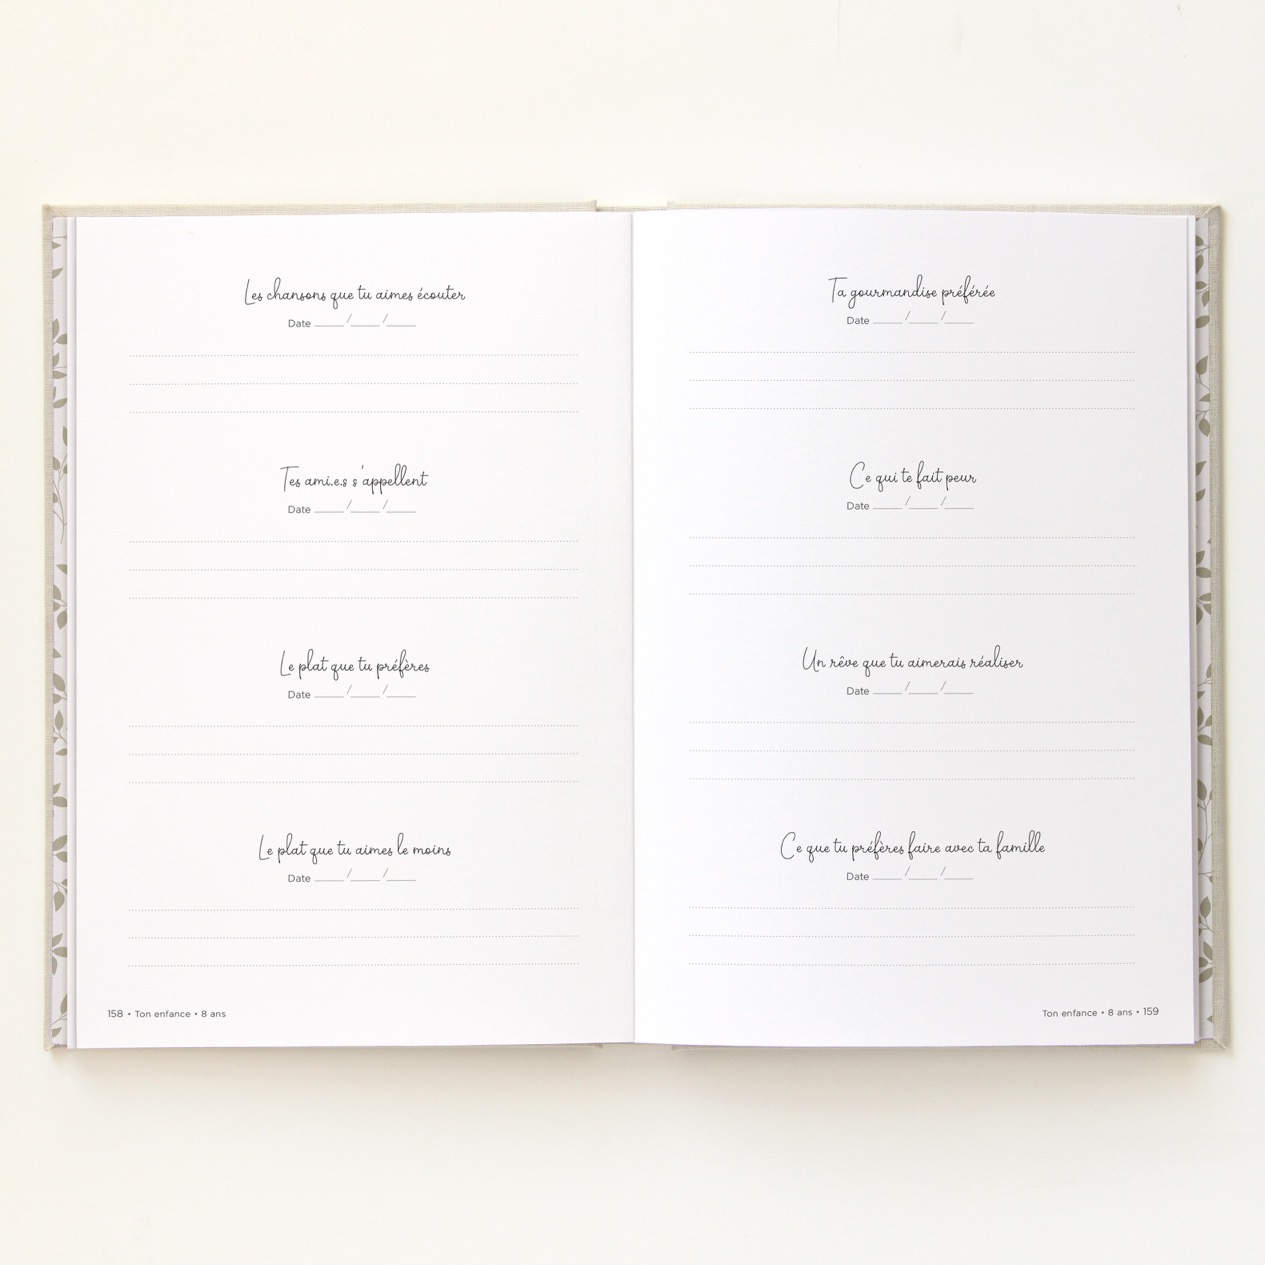 Les chansons que tu aimes écouter
Date ____/____/____
Tes ami.e.s s'appellent
Date ____/____/____
Le plat que tu préfères
Date ____/____/____
Le plat que tu aimes le moins
Date ____/____/____
158 • Ton enfance • 8 ans
Ta gourmandise préférée
Date ____/____/____
Ce qui te fait peur
Date ____/____/____
Un rêve que tu aimerais réaliser
Date ____/____/____
Ce que tu préfères faire avec ta famille
Date ____/____/____
Ton enfance • 8 ans • 159